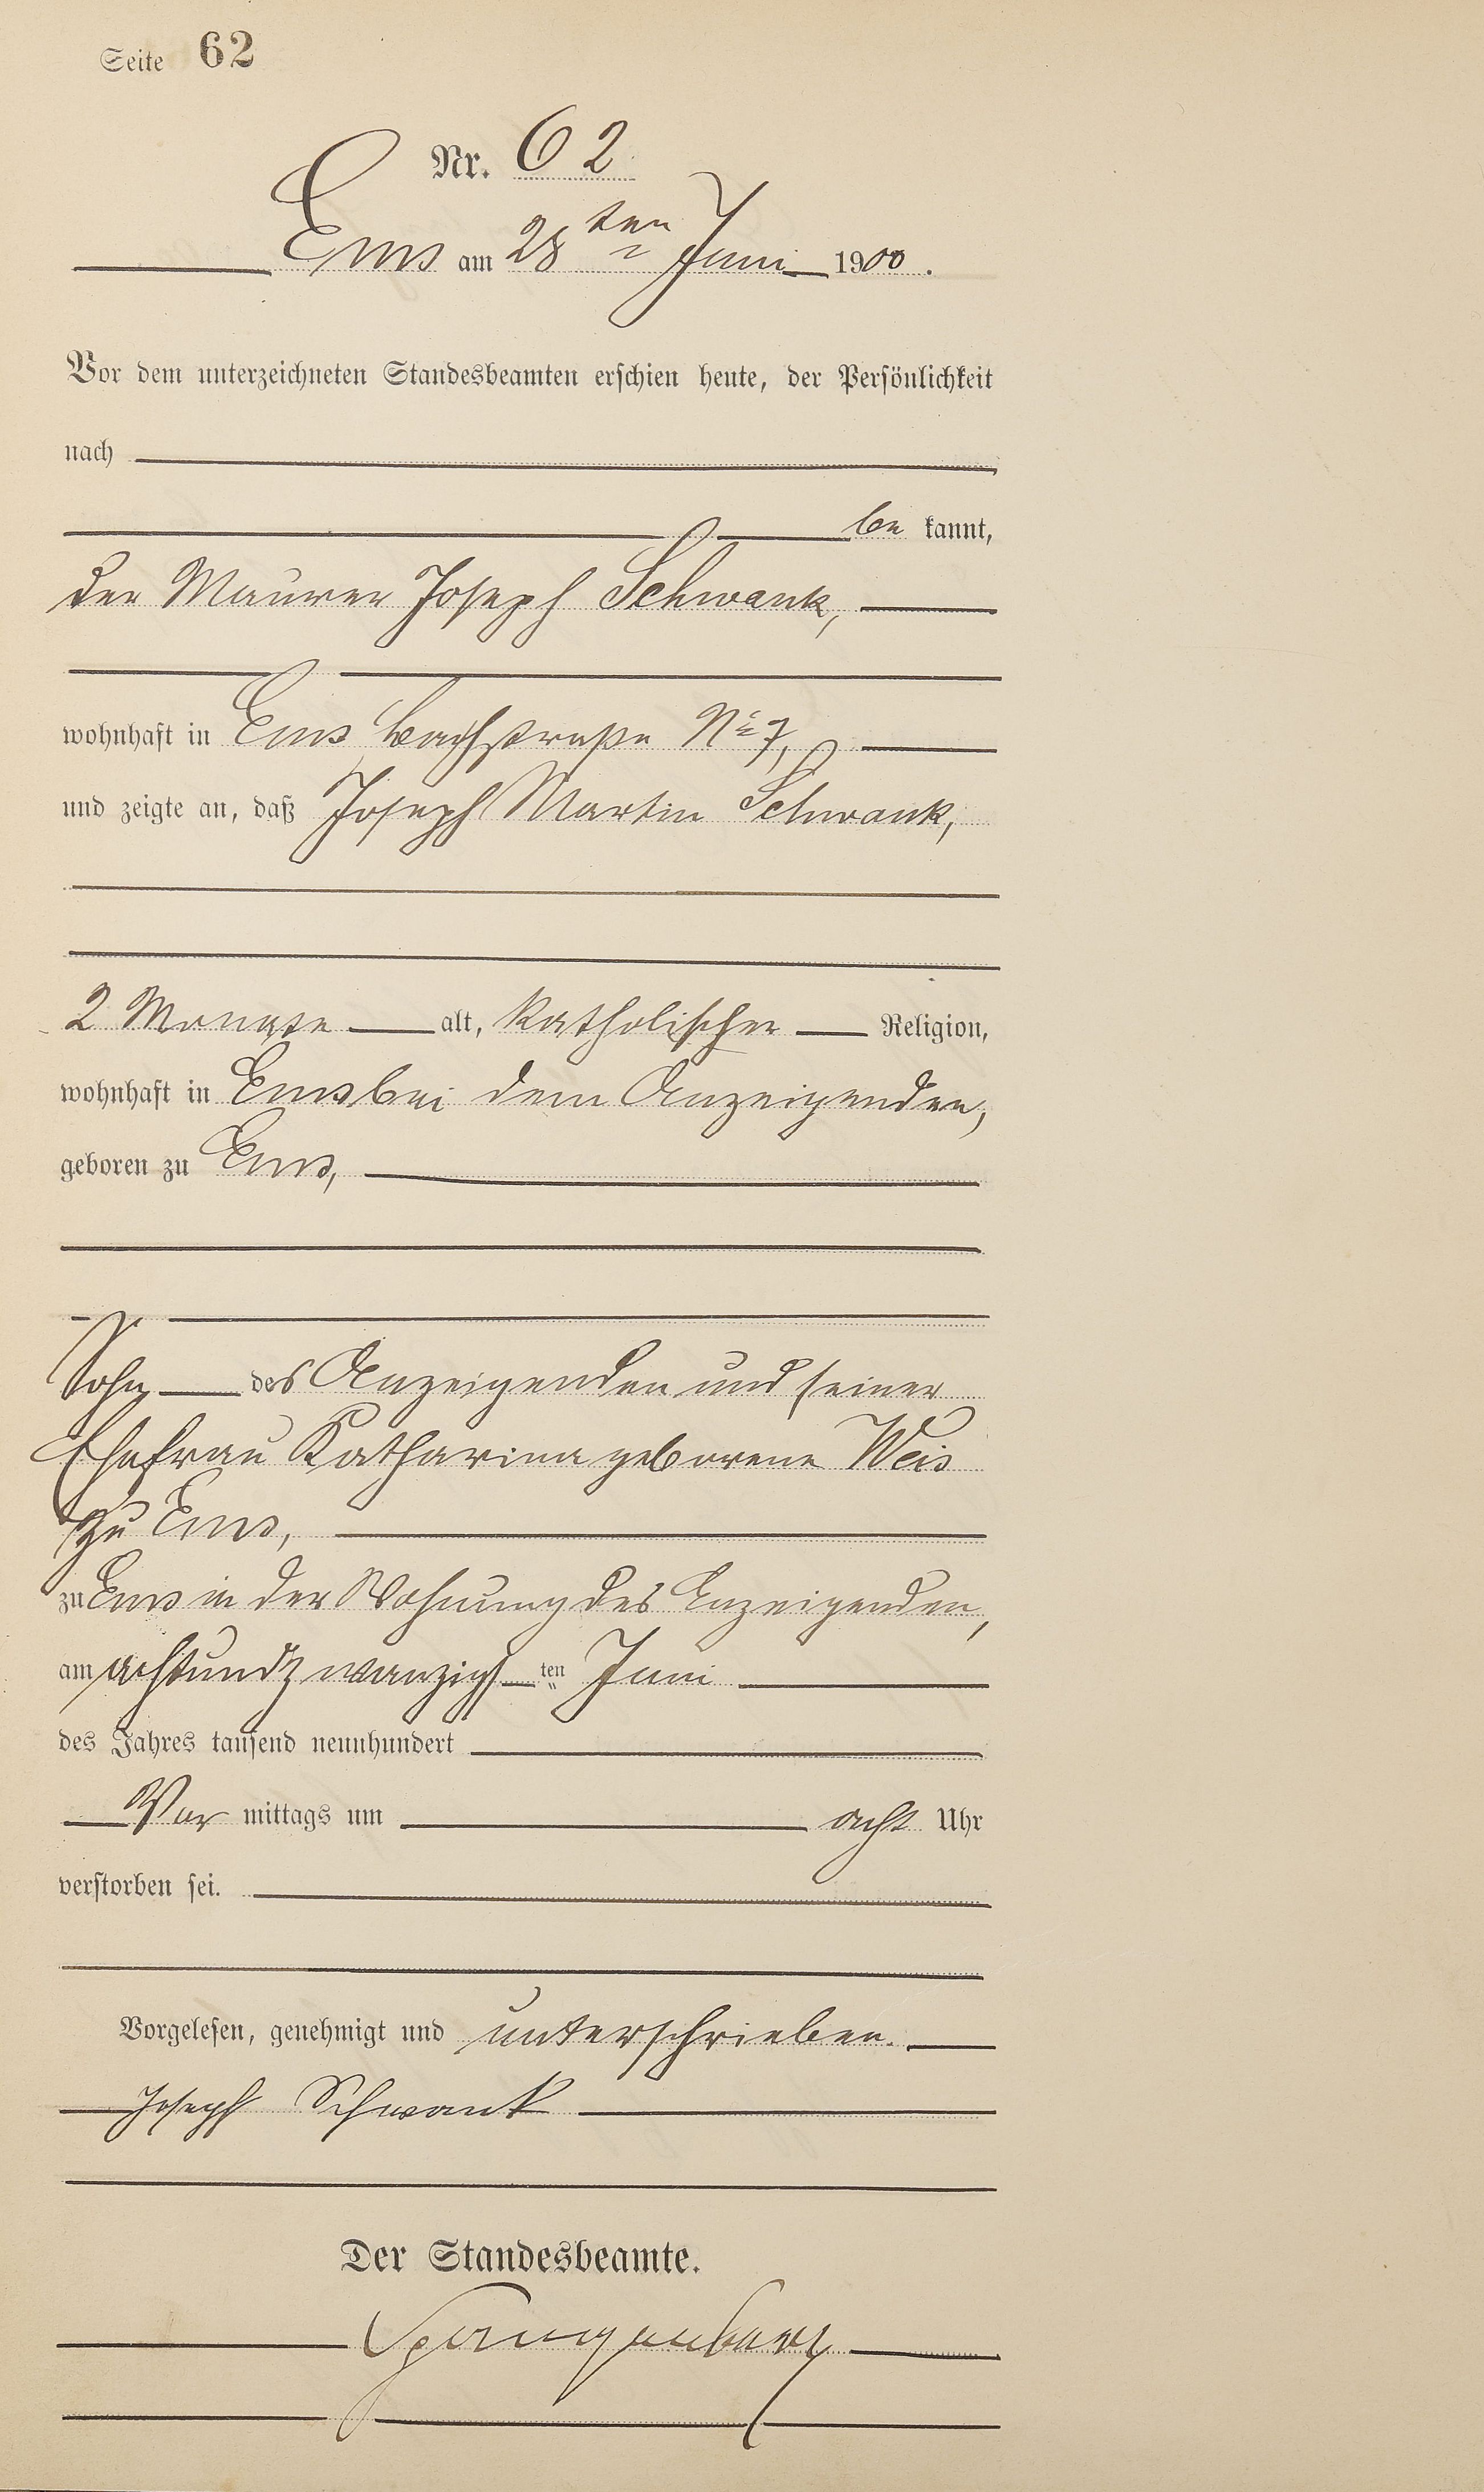 Seite 62
Nr. 62
Ems am 28ten Juni 1900.
Vor dem unterzeichneten Standesbeamten erschien heute, der Persönlichkeit
nach
be kannt,
der Maurer Joseph Schwank,
wohnhaft in Ems Bachstraße No 7,
und zeigte an, daß Joseph Martin Schwank,
2 Monate alt, katholischer Religion,
wohnhaft in Ems bei dem Anzeigenden,
geboren zu Ems,
Sohn des Anzeigenden und seiner
Ehefrau Katharina geborene Weis
zu Ems,
zu Ems in der Wohnung des Anzeigenden,
am achtundzwanzigsten Juni
des Jahres tausend neunhundert
Vor mittags um acht Uhr
verstorben sei.
Vorgelesen, genehmigt und unterschrieben.
Joseph Schwank
Der Standesbeamte.